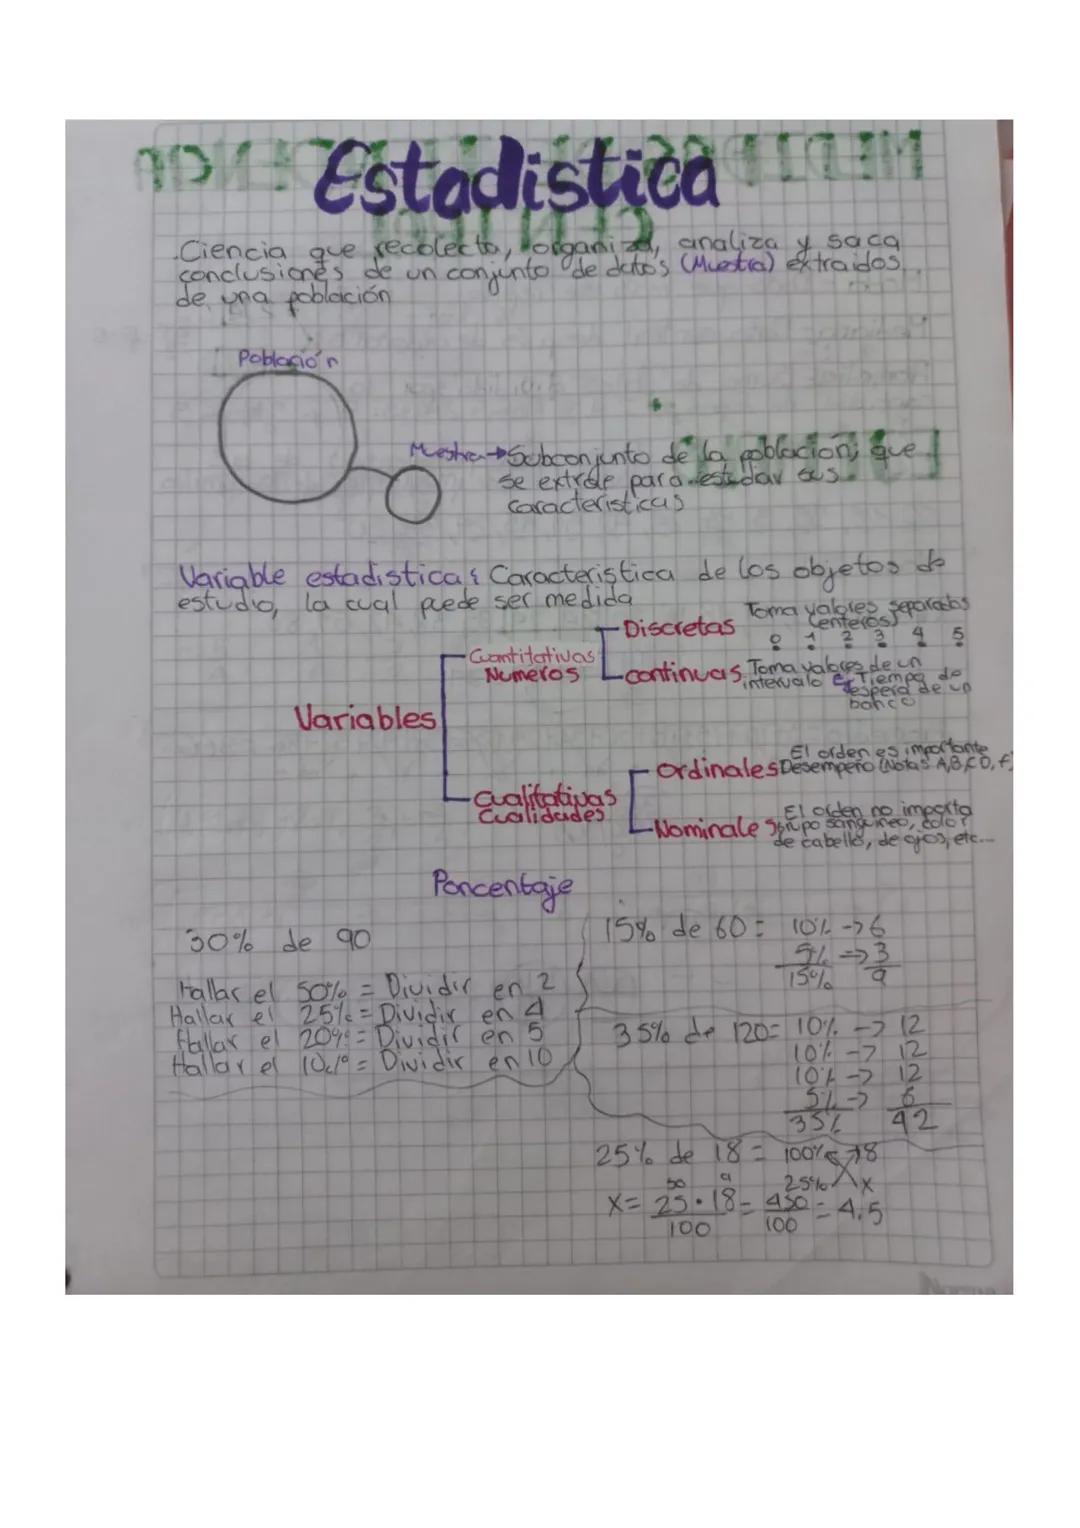 Estadistica
.Ciencia que recolecta, organiza, analiza y saca
conclusiones de un conjunto de datos (Muestra) extraidos
de una población
Población
Muestra→Subconjunto de la poblacion, que
se extrae para estudiar sus
caracteristicas
Variable estadistica: Caracteristica de los objetos de
estudio, la cual puede ser medida
Variables
Cuantitativas
Numeros
Discretas
Toma valores separados
(enteros)
0 1 2 3 4 5
continuas
Toma valores de un
intervalo Ej Tiempo de
espera de un
banco
Cualitativas
Cualidades
Ordinales
El orden es importante
Desempeño (Notas A,B,C,D,F)
Nominales
El orden no importa
Grupo sanguineo, color
de cabello, de ojos, etc...
Porcentaje
30% de 90
Hallar el 50% = Dividir en 2
Hallar el 25% = Dividir en 4
Hallar el 20% = Dividir en 5
Hallar el 10% = Dividir en 10
15% de 60 = 10% -> 6
5% => 3
15% 9
35% de 120 = 10% -> 12
10% -> 12
10% -> 12
5% -> 6
35% 42
25% de 18 = 100% 18
25% x
50 9
X = 25 • 18 = 450 = 4.5
100 100
Norma